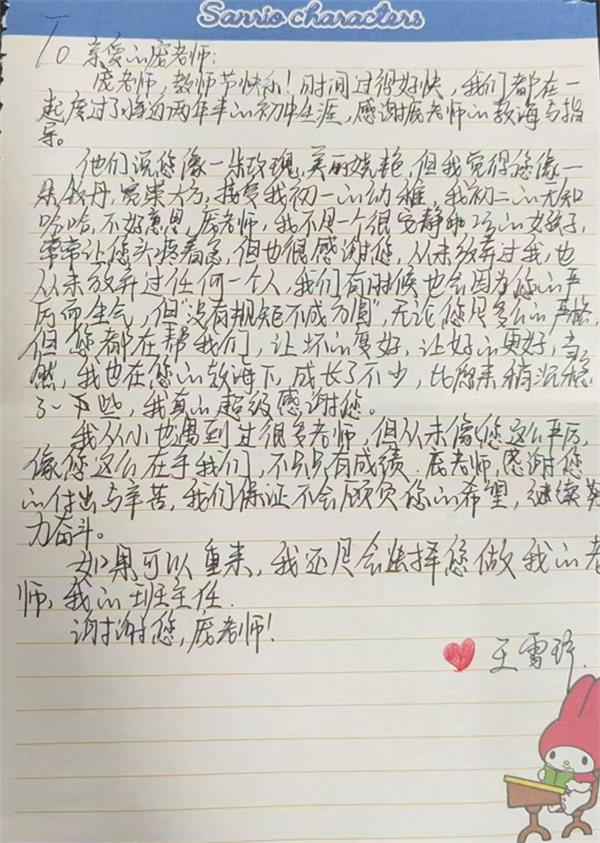 Sanrio characters
To 亲爱的庞老师：
庞老师，教师节快乐！时间过得好快，我们都在一
起度过了将近两年半的初中生涯，感谢庞老师的教诲与指
导。
他们说您像一朵玫瑰，美丽娆艳，但我觉得您像一
朵牡丹，宽宏大方，接受我初一的幼稚，我初二的无知
哈哈，不好意思，庞老师，我不是一个很安静的女孩子，
常常让您头疼着急，但也很感谢您，从未放弃过我，也
从未放弃过任何一个人，我们有时候也会因为您的严
厉而生气，但"没有规矩不成方圆"，无论您是多么的严格，
但您都在帮我们，让坏的变好，让好的更好，当
然，我也在您的教诲下，成长了不少，比原来稍沉稳
了一下些，我真的超级感谢您。
我从小也遇到过很多老师，但从未像您这么严厉，
像您这么在乎我们，不只只有成绩．庞老师，感谢您
的付出与辛苦，我们保证不会顾负您的希望，继续努
力奋斗。
如果可以重来，我还是会选择您做我的老
师，我的班主任．
谢谢您，庞老师！
王雪